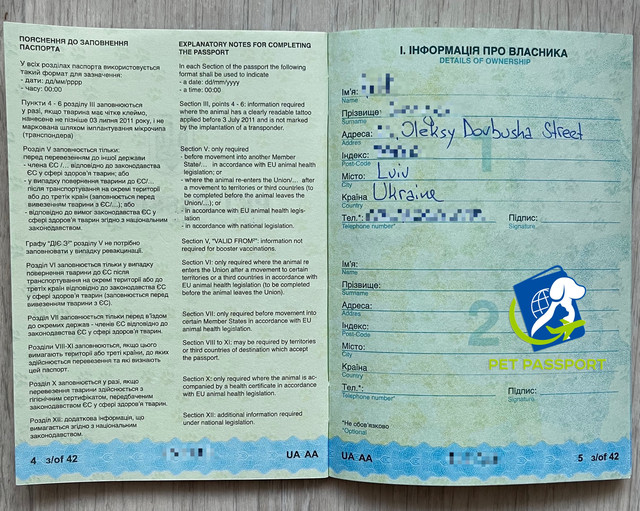 ПОЯСНЕННЯ ДО ЗАПОВНЕННЯ
ПАСПОРТА
У всіх розділах паспорта використовується
такий формат для зазначення:
- дати: дд/мм/рррр
- часу: 00:00
Пункти 4 - 6 розділу III заповнюються
у разі, якщо тварина має чітке клеймо,
нанесене не пізніше 03 липня 2011 року, і не
маркована шляхом імплантування мікрочипа
(транспондера)
Розділ V заповнюється тільки:
перед перевезенням до іншої держави
- члена ЄС /... відповідно до законодавства
ЄС у сфері здоров'я тварин; або
- у випадку повернення тварини до ЄС/...
після транспортування на окремі території
або до третіх країн (заповнюється перед
вивезенням тварини з ЄС/...); або
- відповідно до вимог законодавства ЄС у
сфері здоров'я тварин згідно з національним
законодавством.
Графу "ДІЄ З" розділу V не потрібно
заповнювати у випадку ревакцинації.
Розділ VI заповнюється тільки у випадку
повернення тварини до ЄС після
транспортування на окремі території або до
третіх країн відповідно до законодавства ЄС
у сфері здоров'я тварин (заповнюється перед
вивезенням тварини з ЄС).
Розділ VII заповнюється тільки перед в'їздом
до окремих держав - членів ЄС відповідно до
законодавства ЄС у сфері здоров'я тварин.
Розділи VIII-XI заповнюються, якщо цього
вимагають території або треті країни, до яких
здійснюється перевезення та які визнають
цей паспорт.
Розділ X заповнюється у разі, якщо
перевезення тварини здійснюється з
гігієнічним сертифікатом, передбаченим
законодавством ЄС у сфері здоров'я тварин.
Розділ XII: додаткова інформація, що
вимагається згідно з національним
законодавством.
4 з/of 42
EXPLANATORY NOTES FOR COMPLETING
THE PASSPORT
In each Section of the passport the following
format shall be used to indicate
- a date: dd/mm/yyyy
- a time: 00:00
Section III, points 4 - 6: information required
where the animal has a clearly readable tattoo
applied before 3 July 2011 and is not marked
by the implantation of a transponder.
Section V: only required
- before movement into another Member
State/... in accordance with EU animal health
legislation; or
- where the animal re-enters the Union/... after
a movement to territories or third countries (to
be completed before the animal leaves the
Union/...); or
- in accordance with EU animal health legis-
lation
- in accordance with national legislation.
Section V, "VALID FROM": information not
required for booster vaccinations.
Section VI: only required where the animal re
enters the Union after a movement to certain
territories or a third countries in accordance with
EU animal health legislation (to be completed
before the animal leaves the Union).
Section VII: only required before movement into
certain Member States in accordance with EU
animal health legislation.
Section VIII to XI: may be required by territories
or third countries of destination which accept
the passport.
Section X: only required where the animal is ac-
companied by a health certificate in accordance
with EU animal health legislation.
Section XII: additional information required
under national legislation.
UA AA
I. ІНФОРМАЦІЯ ПРО ВЛАСНИКА
DETAILS OF OWNERSHIP
1
Ім'я:
Name
Прізвище:
Surname
Адреса: Oleksy Dovbusha Street
Address
Індекс:
Post-Code
Місто: Lviv
City
Країна Ukraine
Country
Тел.*: Підпис:
Telephone number* Signature
2
Ім'я:
Name
Прізвище:
Surname
Адреса:
Address
Індекс:
Post-Code
Місто:
City
Країна
Country
Тел.*: Підпис:
Telephone number* Signature
PET PASSPORT
*Не обов'язково
*Optional
UA AA
5 з/of 42